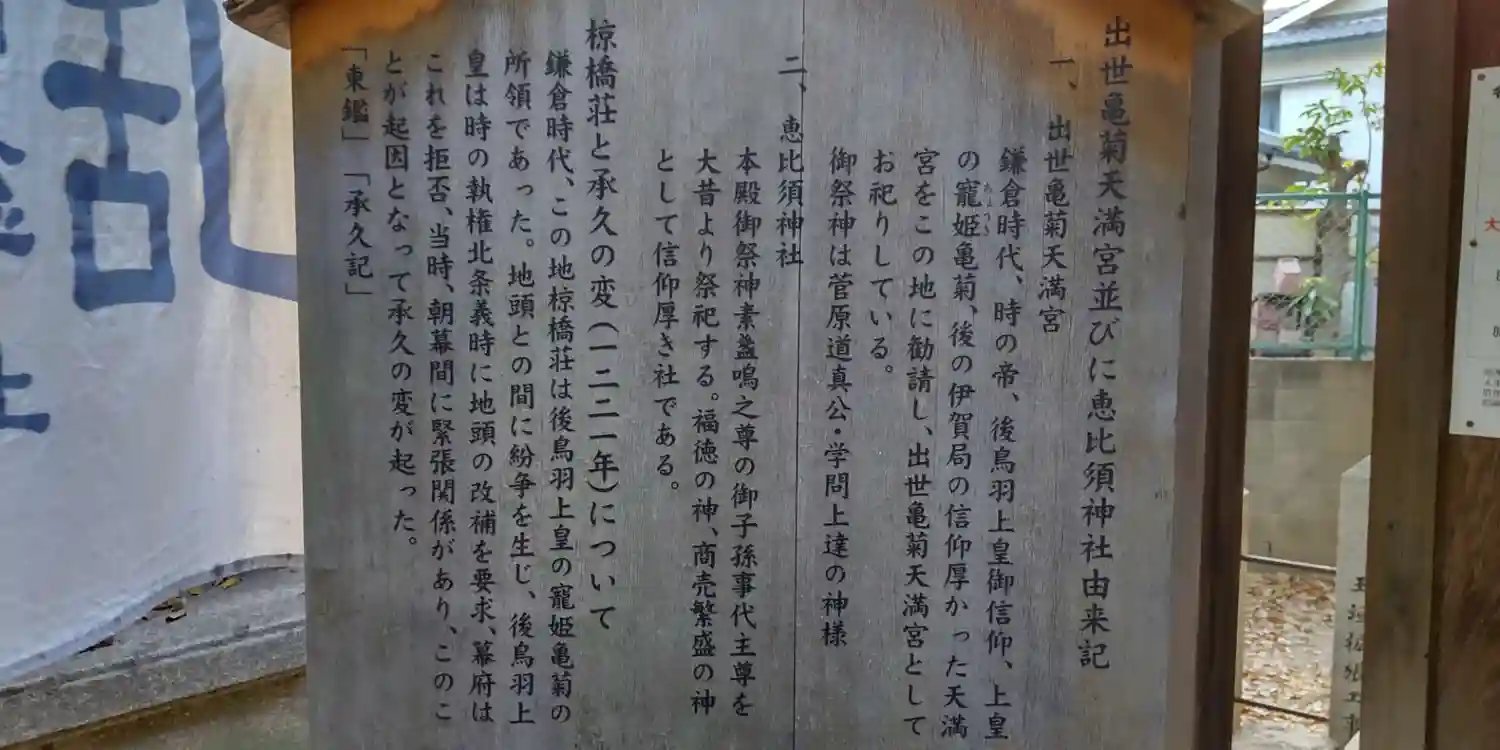 出世亀菊天満宮並びに恵比須神社由来記
一、出世亀菊天満宮
鎌倉時代、時の帝、後鳥羽上皇御信仰、上皇
の寵姫亀菊、後の伊賀局の信仰厚かった天満
宮をこの地に勧請し、出世亀菊天満宮として
お祀りしている。
御祭神は菅原道真公・学問上達の神様
二、恵比須神社
本殿御祭神素盞嗚之尊の御子孫事代主尊を
大昔より祭祀する。福徳の神、商売繁盛の神
として信仰厚き社である。
椋橋荘と承久の変(一二二一年)について
鎌倉時代、この地椋橋荘は後鳥羽上皇の寵姫亀菊の
所領であった。地頭との間に紛争を生じ、後鳥羽上
皇は時の執権北条義時に地頭の改補を要求、幕府は
これを拒否、当時、朝幕間に緊張関係があり、このこ
とが起因となって承久の変が起った。
「東鑑」「承久記」